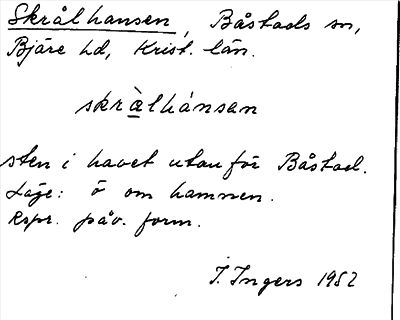 Skrålhansen, Båstads sn,
Bjäre hd, Krist. län.
skràlhánsan
sten i havet utanför Båstad.
Läge: ö om hamnen.
Rspr. påv. form.
I. Ingers 1952